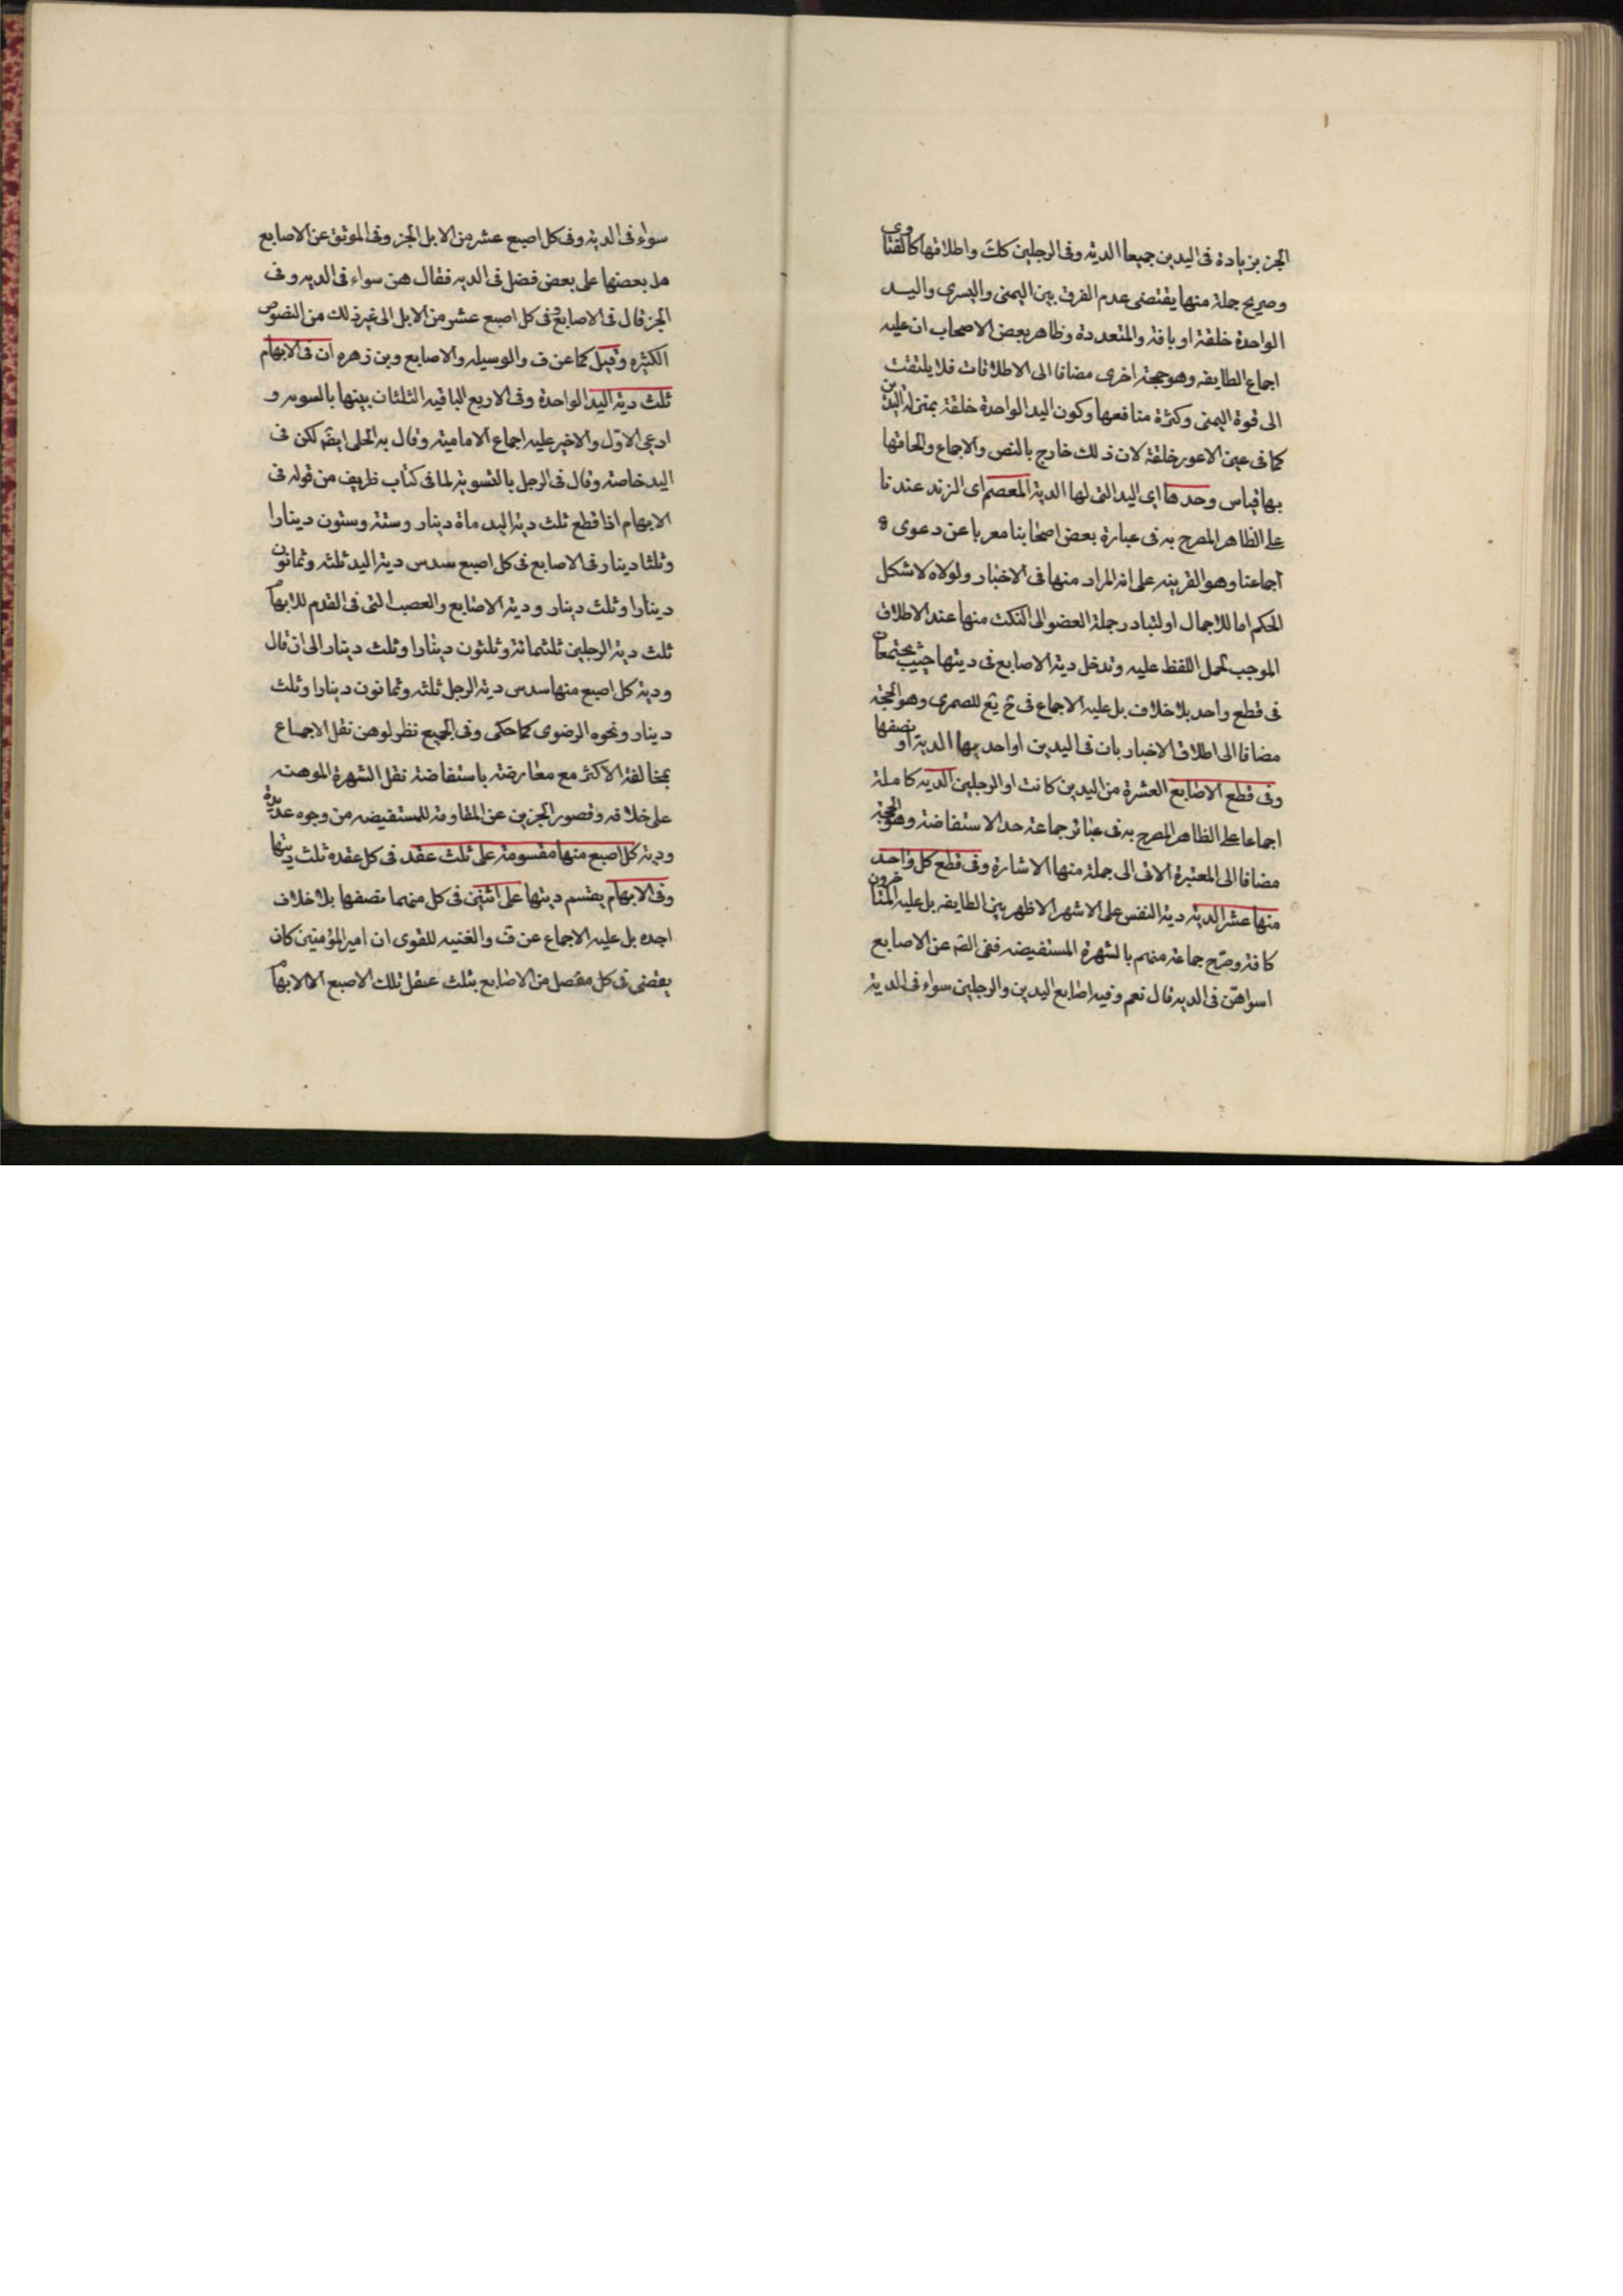 الخبر بزيادة فى اليدين جميعا الدية وفى الرجلين كك واطلاقها كالفتاوى
وصريح جملة منها يقتضى عدم الفرق بين اليمنى واليسرى واليـــد
الواحدة خلقة او بافة والمتعددة وظاهر بعض الاصحاب ان عليه
اجماع الطايفه وهو حجة اخرى مضافا الى الاطلاقات فلا يلتفت
الى قوة اليمنى وكثرة منافعها وكون اليد الواحدة خلقة بمنزلة اليدين
كما فى عين الاعور خلقة لان ذلك خارج بالنص والاجماع والحاقها
بها قياس وحدها اى اليد التى لها الدية المعصم اى الزند عندنا
على الظاهر المصرح به فى عبارة بعض اصحابنا معربا عن دعوى
اجماعنا وهو القرينه على انه المراد منها فى الاخبار ولولاه لاشكل
الحكم اما للاجمال او لتبادر جملة العضو الى المنكب منها عند الاطلاق
الموجب لحمل اللفظ عليه وتدخل دية الاصابع فى ديتها حيث يجتمعان
فى قطع واحد بلا خلاف بل عليه الاجماع فى ح يع للصمرى وهو الحجة
مضافا الى اطلاق الاخبار بان فى اليدين او احديهما الدية او نصفها
وفى قطع الاصابع العشرة من اليدين كانت او الرجلين الديه كاملة
اجماعا على الظاهر المصرح به فى عبائر جماعة حد الاستفاضة وهو الحجة
مضافا الى المعتبرة الاتى الى جملة منها الاشارة وفى قطع كل واحـد
منها عشر الديه دية النفس على الاشهر الاظهر بين الطايفه بل عليه المتاخرون
كافة وصرح جماعة منهم بالشهرة المستفيضه ففى الصّ عن الاصابع
اسواهن فى الديه قال نعم وفيه اصابع اليدين والرجلين سواء فى الدية
سواء فى الدية وفى كل اصبع عشر من الابل الخبر وفى الموثق عن الاصابع
هل بعضها على بعض فضل فى الديه فقال هن سواء فى الديه وفى
الخبر قال فى الاصابع فى كل اصبع عشر من الابل الى غير ذلك من النصوص
الكثيره وقيل كما عن ف والوسيله والاصابع وبن زهره ان فى الابهام
ثلث دية اليد الواحدة وفى الاربع الباقيه الثلثان بينها بالسويه و
ادعى الاول والاخير عليه اجماع الامامية وقال به الحلى ايضَ لكن فى
اليد خاصة وقال فى الرجل بالتسوية لما فى كتاب ظريف من قوله فى
الابهام اذا قطع ثلث دية اليد ماة دينار وستة وستون دينارا
وثلثا دينار فى الاصابع فى كل اصبع سدس دية اليد ثلثه وثمانون
دينارا وثلث دينار ودية الاصابع والعصب التى فى القدم للابهام
ثلث دية الرجلين ثلثمائة وثلثون دينارا وثلث دينار الى ان قال
ودية كل اصبع منها سدس دية الرجل ثلثه وثمانون دينارا وثلث
دينار ونحوه الرضوى كما حكى وفى الجميع نظر لوهن نقل الاجماع
بمخالفة الاكثر مع معارضته باستفاضة نقل الشهرة الموهنه
على خلافه وقصور الخبرين عن المقاومة للمستفيضه من وجوه عديدة
ودية كل اصبع منها مقسومة على ثلث عقد فى كل عقده ثلث ديتها
وفى الابهام يقتسم ديتها على اثنين فى كل منهما نصفها بلا خلاف
اجده بل عليه الاجماع عن ف والغنيه للقوى ان امير المؤمنين كان
يقضى فى كل مفصل من الاصابع بثلث عقل تلك الاصبع الا الابهام